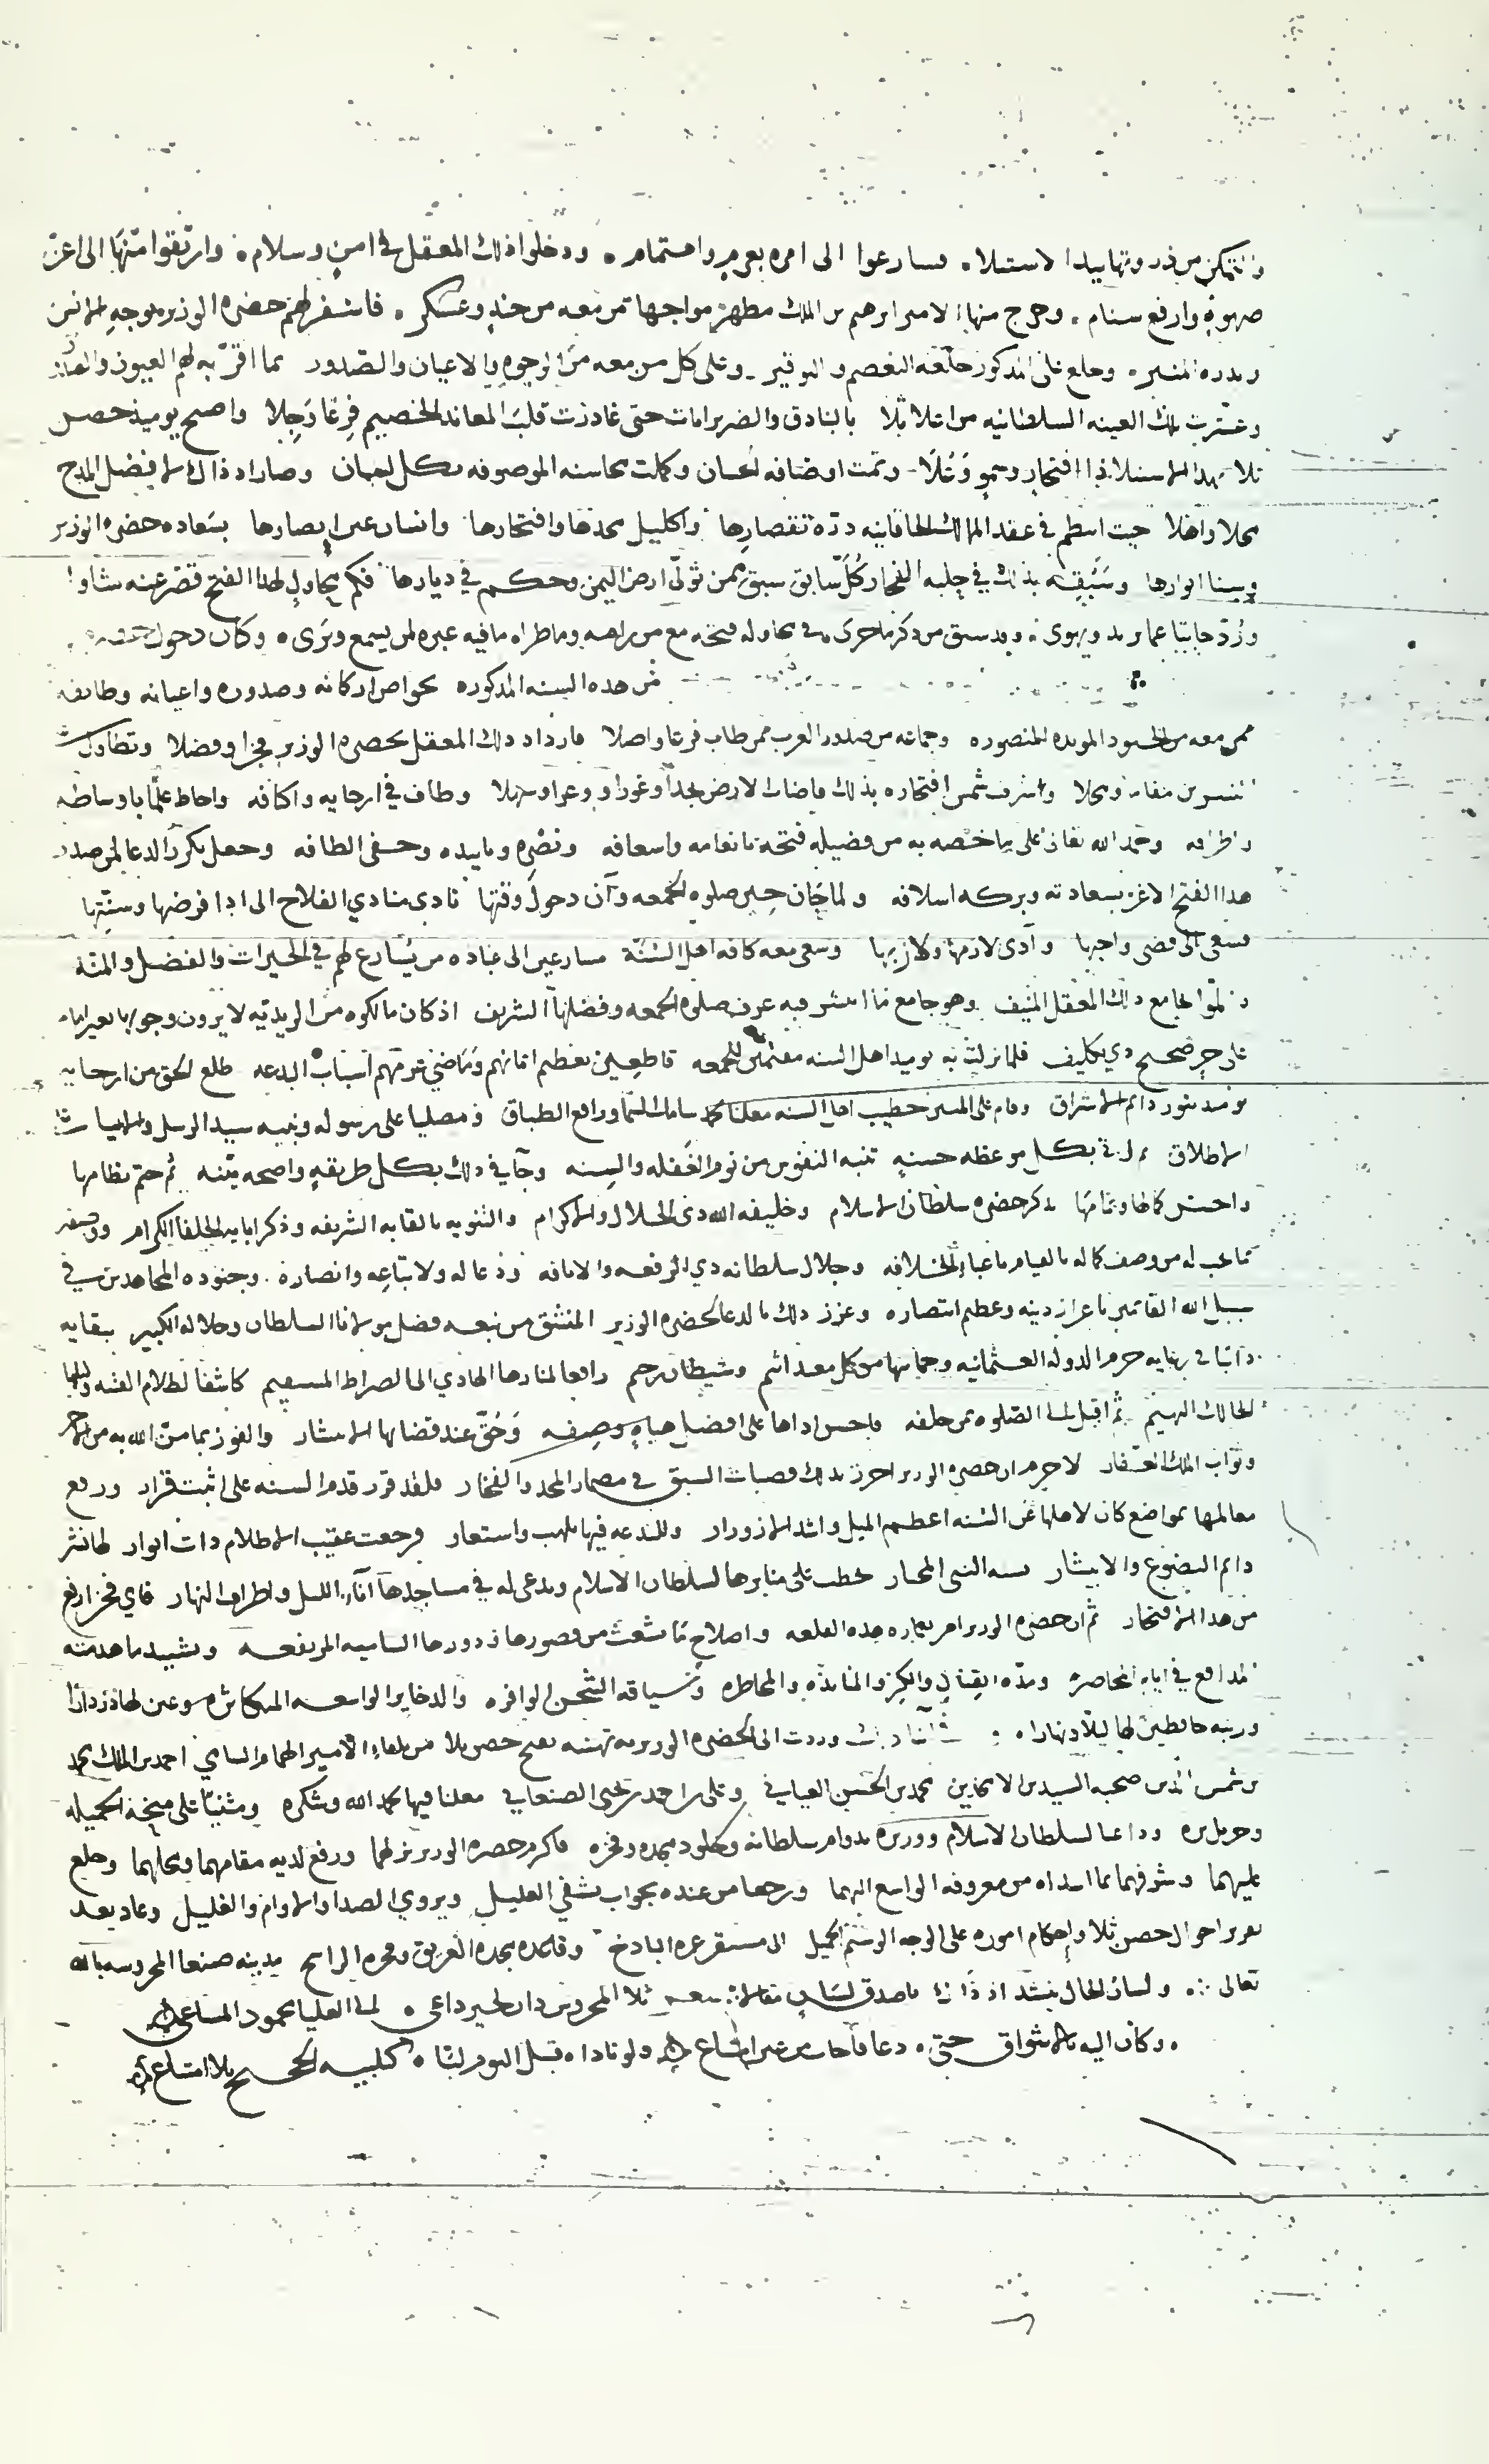 والتمكن من ذروتها بيد الاستيلا. فسارعوا الى امره بعزم واهتمام. ودخلوا ذلك المعقل في امن وسلام. وارتقوا منها الى اعز
صهوة وارفع سنام. وخرج منها الامير ابرهيم بن الملك مطهر مواجها بمن معه من جند وعسكر. فاسفر لهم حضره الوزير بوجه
وبدره المنير. وخلع على المذكور خلعه التعظيم والتوقير وعلى كل من معه من الوجوه والاعيان والصدور بما اقر به لهم العيون
وعشرت تلك العينه السلطانيه من اعلا ثلا بالبنادق والضربزانات حتى غادرت قلب المعاند الخصيم فزعا وجلا واصبح يوميذ حصن
ثلا بهذا الاستيلا ذا افتخار وسمو وعلا وتمت اوصافه الحسان وكملت محاسنه الموصوفه بكل لسان وصار اذ ذاك لافضل المدح
محلا واهلا حيث انتظم في عقد الممالك الخاقانيه دره تقصارها واكليل مجدها وافتخارها وانسان عين ابصارها بسعاده حضره الوزير
وسنا انوارها وسبقه بذلك في حلبه الفخار كل سابق سبق ممن تولى ارض اليمن وحكم في ديارها فكم محاول لهذا الفتح قصر عنه شاوا
ورد خايبا عما يريد ويهوى. وقد سبق من ذكر ما جرى في محاوله فتحه مع من رامه وما طراه ما فيه عبره لمن يسمع ويرى. وكان دخول
من هذه السنه المذكوره بخواص اركانه وصدوره واعيانه وطايفه
ممن معه من الجنود المويده المنصوره وجماعه من صدور العرب ممن طاب فرعا واصلا فازداد ذلك المعقل بحضره الوزير فخرا وفضلا وتطاول
النسرين مقاما ومحلا واشرقت شمس افتخاره بذلك فاضات الارض نجدا وغورا ووعرا وسهلا وطاف في ارجايه واكنافه واحاط علما باوساطه
واطرافه وحمد الله تعالى على ما خصه به من فضيله فتحه بانعامه واسعافه ونصره وتاييده وخفي الطافه وجعل يكرر الدعا لمن صدر
هذا الفتح الاغر بسعادته وبركه اسلافه ولما حان حين صلوه الجمعه وآن دخول وقتها نادى منادي الفلاح الى ادا فرضها وسنتها
فسعى الى فضى واجبها وادى لازمها ولازبها وسعى معه كافه اهل السنه مسارعين الى عباده من يسارع لهم في الخيرات والفضل والمنه
وامّوا جامع ذلك المعقل المنيف وهو جامع ما انتشر فيه عرف صلوه الجمعه وفضلها الشريف اذ كان مالكوه من الزيديه لا يرون وجوبها بغير امام
على حر صحيح ذي تكليف فلما نزلت به يوميذ اهل السنه مقيمين للجمعه قاطعين بعظيم ايمانهم وماضي عزمهم اسباب البدعه طلع الحق من ارجايه
يوميذ بنور دايم الاشراق وقام على المنبر خطيب اهل السنه معلنا بحمد سامك السما ورافع الطباق ومصليا على رسوله ونبيه سيد الرسل والانبيا
الاطلاق ثم اتى بكل موعظه حسنه تنبه النفوس من نوم الغفله والسنه وجا في ذلك بكل طريقه واضحه بينه ثم ختم نظامها
واحسن كمالها وتمامها بذكر حضره سلطان الاسلام وخليفه الله ذي الجلال والاكرام والتنويه بالقابه الشريفه وذكر ابايه الخلفا الكرام ووصفه
بما يجب له من وصف كماله بالقيام باعبا الخلافه وجلال سلطانه ذي الرفعه والانافه ودعا له ولاتباعه وانصاره. وجنوده المجاهدين في
سبيل الله القايمين باعزاز دينه وعظيم انتصاره وعزز ذلك بالدعا لحضره الوزير المنتشق من نبعه فضل مولانا السلطان وجلاله الكبير ببقايه
دايبا في رعايه حرم الدوله العثمانيه وحمايتها من كل معتد اثيم وشيطان رجيم رافعا لمنارها الهادي الى الصراط المستقيم كاشفا لظلام الفتنه وليلها
الحالك البهيم ثم اقبل الى الصلوه بمن خلفه فاحسن اداها على افضل هياه وصفه وحق عند قضايها الاستبشار والفوز بما من الله به من اجر
وثواب الملك الغفار لا جرم ان حضره الوزير احرز بذلك قصبات السبق في مضمار المجد والفخار فلقد قرر قدم السنه على اثبت قرار ورفع
معالمها بمواضع كان لاهلها عن السنه اعظم الميل واشد الازورار وللبدعه فيها تلهب واستعار فرجعت عقيب الاظلام ذات انوار لها نشر
دايم التضوع والانتشار بسنه النبي المختار يخطب على منابرها لسلطان الاسلام ويدعى له في مساجدها آناء الليل واطراف النهار فاي فخر ارفع
من هذا الافتخار ثم ان حضره الوزير امر بعماره هذه القلعه واصلاح ما تشعث من قصورها ودورها الساميه المرتفعه وتشييد ما هدمته
المدافع في ايام المحاصره ومده القتال والكر والمنابذه والمخاطره وسياقه الشحن الوافره والذخاير الواسعه المتكاثره وعين لها دزدارا
ورتبه حافظين لها ليلا ونهارا. وردت الى الحضره الوزيريه تهنيه بفتح حصن ثلا من تلقاء الامير الهمام السامي احمد بن الملك محمد
بن شمس الدين صحبه السيدين الامجدين محمد بن الحسين العياني وعلي بن احمد بن يحيى الصنعاني معلنا فيها بحمد الله وشكره ومثنيا على منحه الجميله
وجزيل بره وداعيا لسلطان الاسلام ووزيره بدوام سلطانه وخلود مجده وفخره فاكرم حضره الوزير نزلهما ورفع لديه مقامهما ومحلهما وخلع
عليهما وشرفهما بما اسداه من معروفه الواسع اليهما ورجعا من عنده بجواب يشفي العليل ويروي الصدا والاوام والغليل وعاد بعد
تقرير احوال حصن ثلا واحكام اموره على الوجه الوسيم الجميل الى مستقر عزه الباذخ وقاعده مجده العريق وفخره الراسخ مدينه صنعا المحروسه بالله
تعالى ولسان الحال ينشد اذ ذاك باصدق لسان ثلا المحروس دان لخير داعي. الى العليا محمود المساعي
وكان اليه بالاشواق حتى. دعا فاجاب من غير امتناع ولو ناداه قبل اليوم لبا. كتلبيه الحجيج بلا امتناع